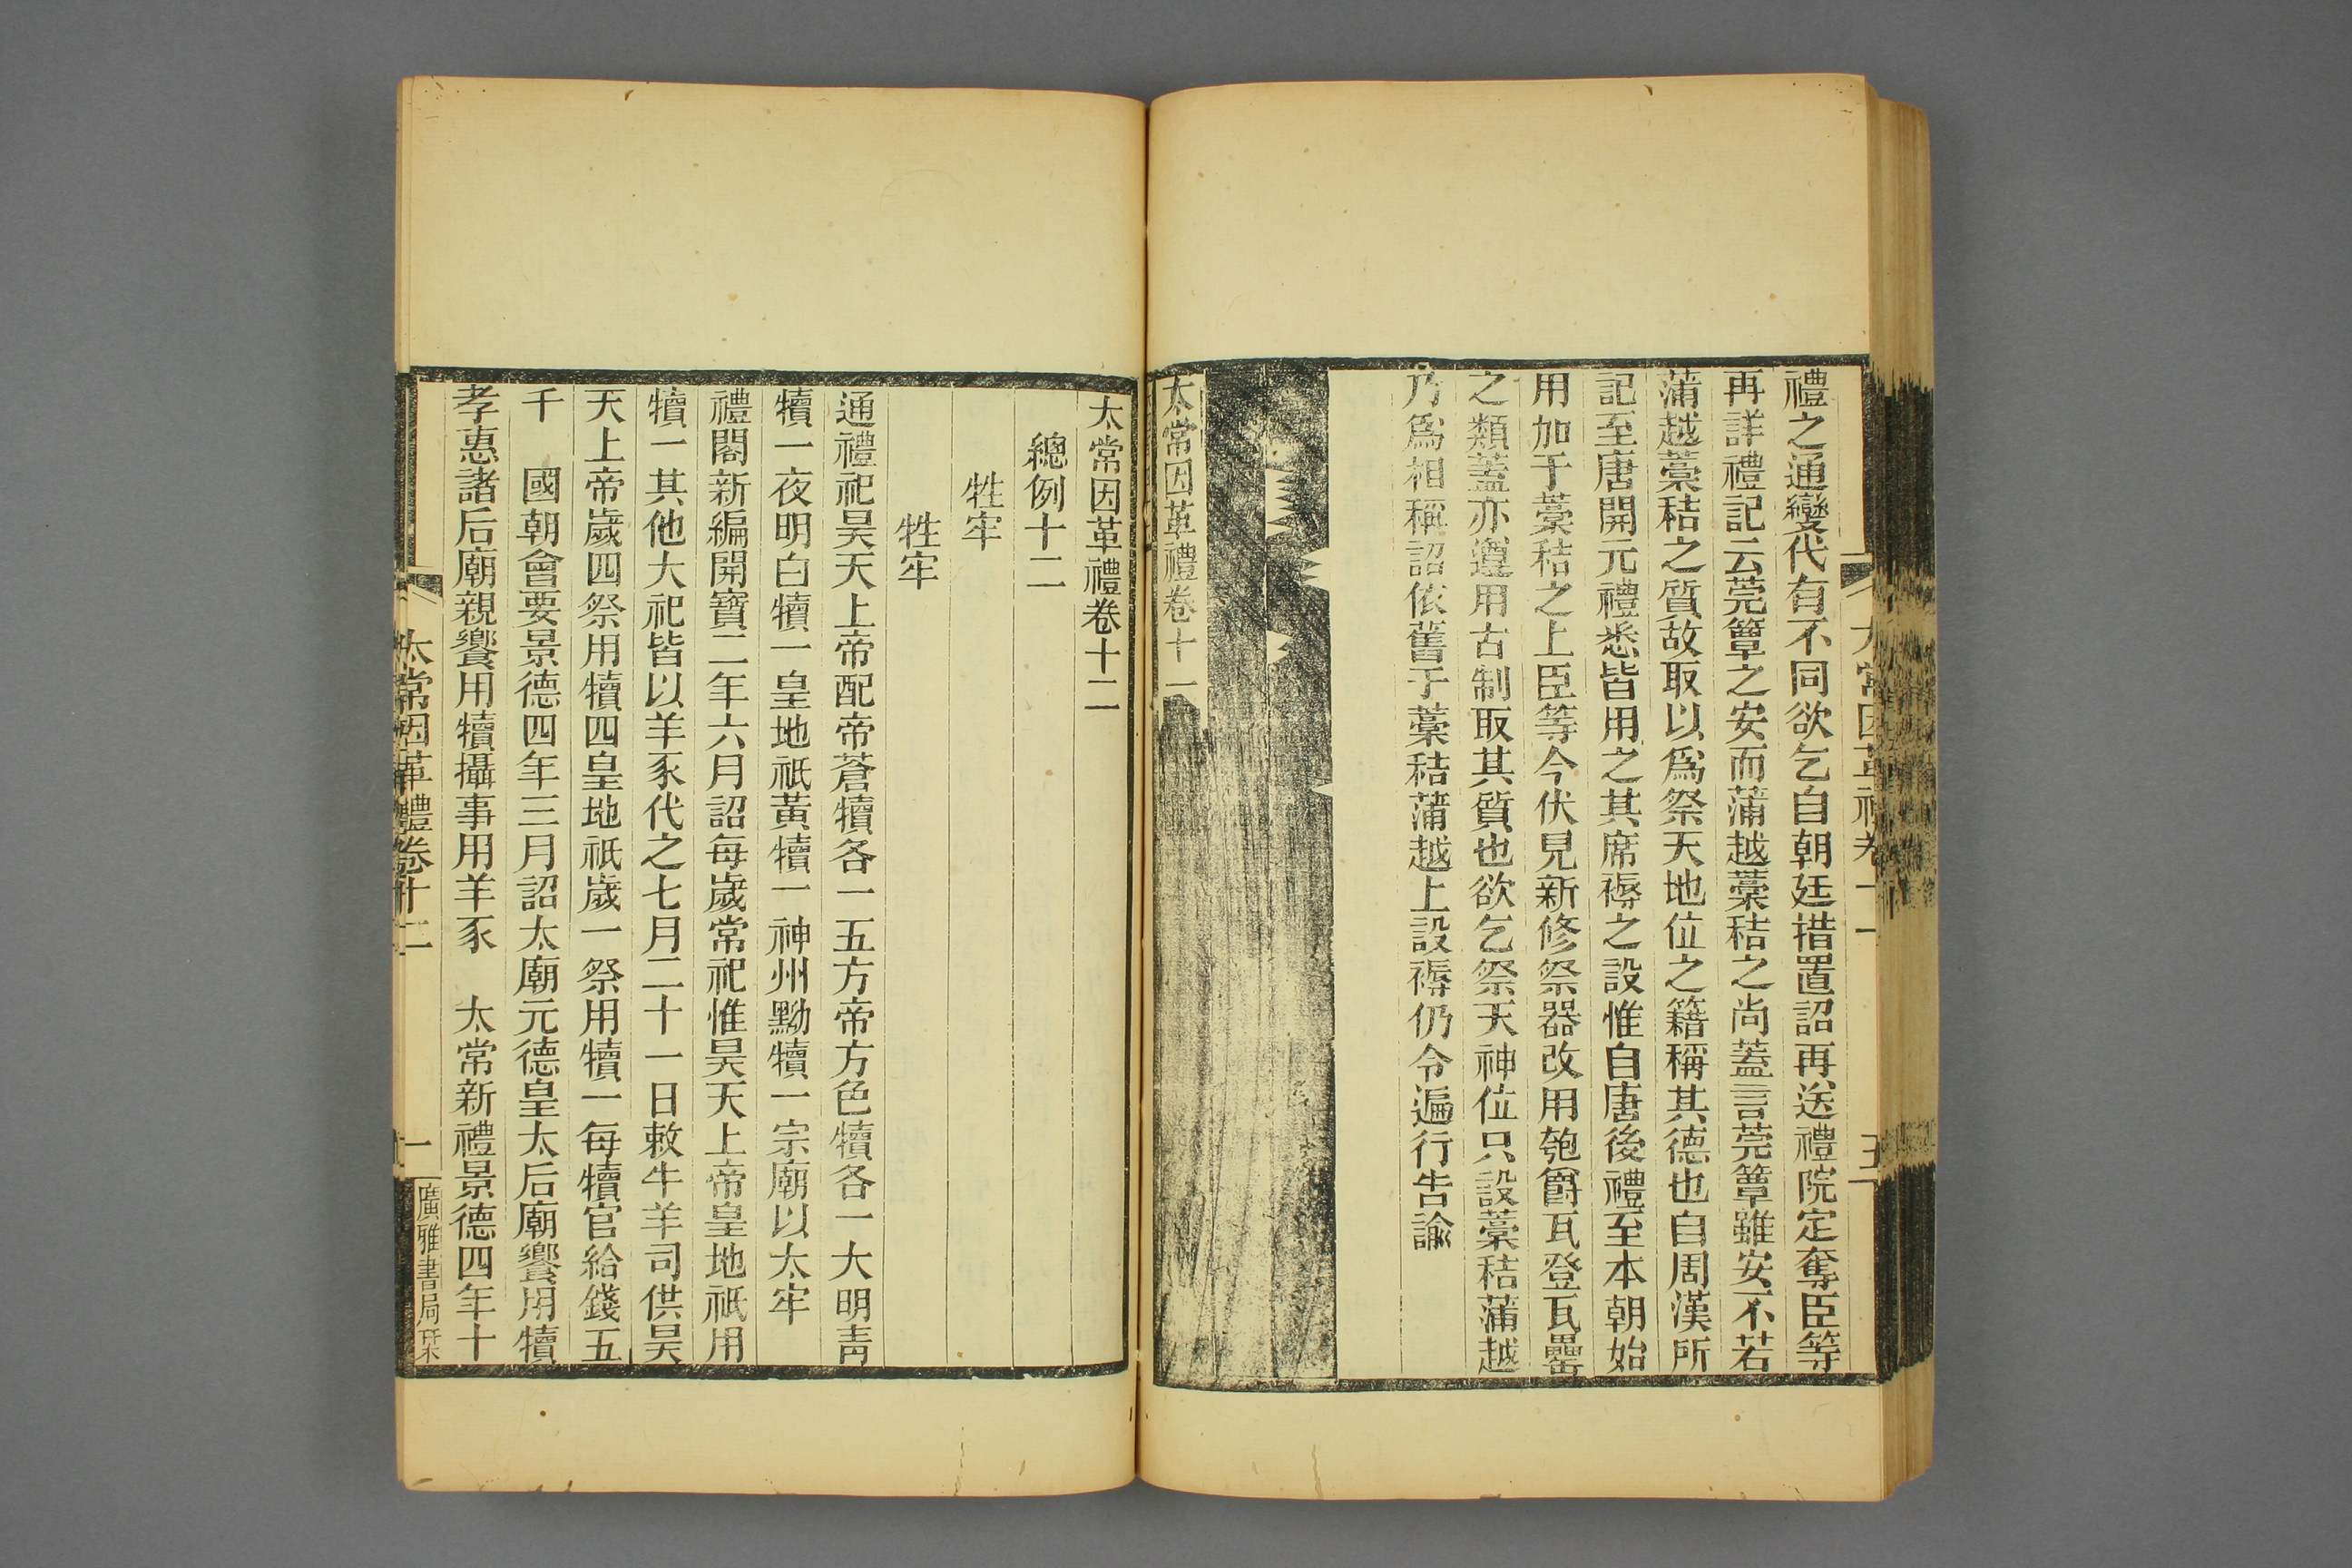 禮之通變代有不同欲乞自朝廷措置詔再送禮院定奪臣等
再詳禮記云莞簟之安而蒲越藁秸之尚蓋言莞簟雖安不若
蒲越藁秸之質故取以爲祭天地位之籍稱其德也自周漢所
記至唐開元禮悉皆用之其席褥之設惟自唐後禮至本朝始
用加于藁秸之上臣等今伏見新修祭器改用匏爵瓦登瓦罍
之類蓋亦遵用古制取其質也欲乞祭天神位只設藁秸蒲越
乃爲相稱詔依舊于藁秸蒲越上設褥仍令遍行告諭
太常因革禮卷十一
太常因革禮卷十二
總例十二
牲牢
牲牢
通禮祀昊天上帝配帝蒼犢各一五方帝方色犢各一大明青
犢一夜明白犢一皇地祇黃犢一神州黝犢一宗廟以太牢
禮閣新編開寶二年六月詔每歲常祀惟昊天上帝皇地祇用
犢一其他大祀皆以羊豕代之七月二十一日敕牛羊司供昊
天上帝歲四祭用犢四皇地祇歲一祭用犢一每犢官給錢五
千　國朝會要景德四年三月詔太廟元德皇太后廟饗用犢
孝惠諸后廟親饗用犢攝事用羊豕　太常新禮景德四年十
太常因革禮卷十二
一
廣雅書局栞